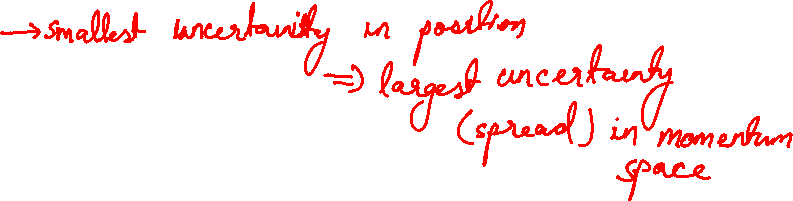 → smallest uncertainity in position
⇒ largest uncertainty
(spread) in momentum
space